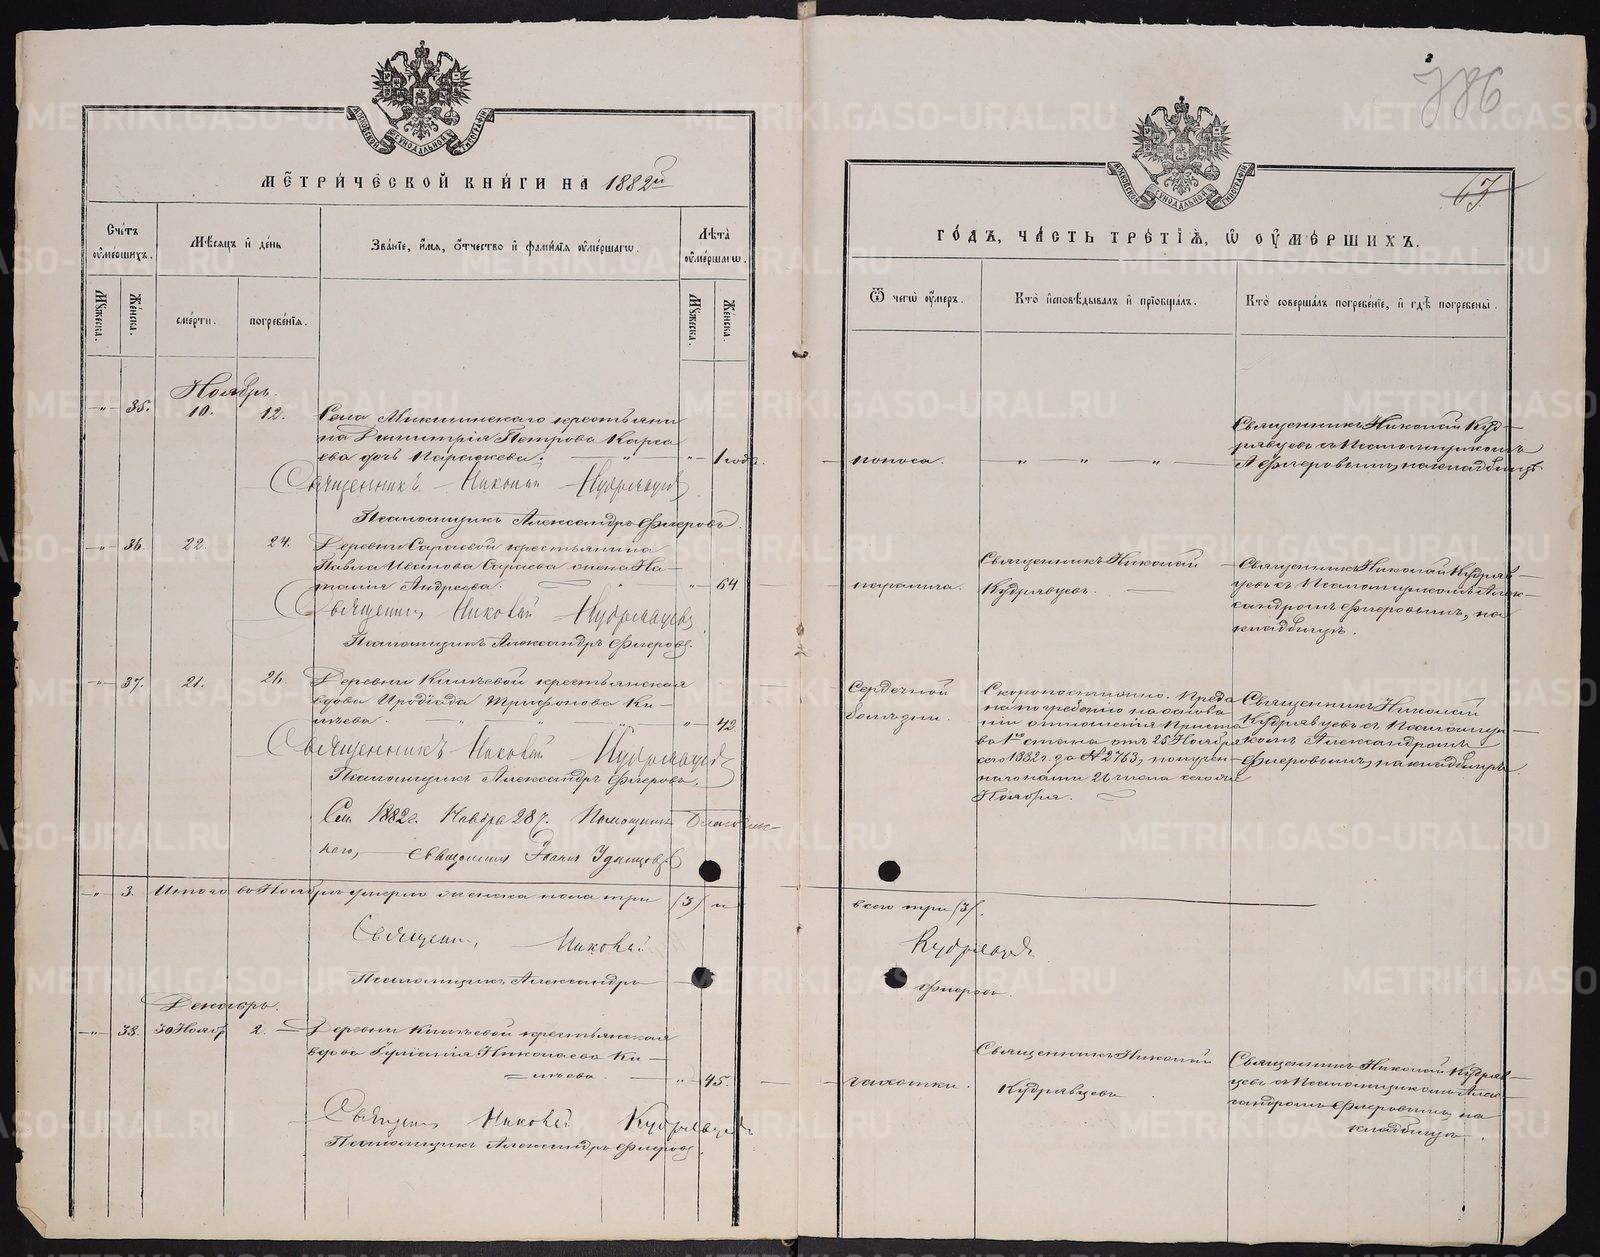 МЕТРИЧЕСКОЙ КНИГИ НА 1882й
Счетъ оумершихъ.
Мѣсяцъ и день
Званіе, имя, отчество и фамилія оумершагω.
Лѣта оумершагω.
Мꙋжеска.
Женска.
смерти.
погребенія.
Мꙋжеска.
Женска.
Ноябрь.
-"- 35. 10. 12. Села Микшинскаго крестьяни
на Димитрія Петрова Карса
ева дочь Параскева. — " — -"- 1 годъ.
Священникъ Николай Кудрявцевъ
Псаломщикъ Александръ Флеровъ.
-"- 36. 22. 24. Деревни Сараевой крестьянина
Павла Иванова Сараева жена На-
талія Андреева. -"- 64
Священникъ Николай Кудрявцевъ
Псаломщикъ Александръ Флеровъ.
-"- 37. 21. 26. Деревни крестьянская
вдова Иродіада Трифонова Ки-
" " -"- 42
Священникъ Николай Кудрявцевъ
Псаломщикъ Александръ Флеровъ.
1882г. Ноября 28 Помощникъ Благочин-
наго, священникъ
-"- 3. Итого въ Ноябрѣ умерло женска пола три (3) и
Священникъ Николай
Псаломщикъ Александръ
Декабрь.
-"- 38. 30 Нояб 2. Деревни крестьянская
вдова Николаева Ки-
-"- 45.
Священникъ Николай Кудрявцевъ
Псаломщикъ Александръ Флеровъ.
786
67
ГОДЪ, ЧАСТЬ ТРЕТІЯ, Ѡ ОУМЕРШИХЪ.
Ѿ чегω оумеръ.
Кто исповѣдывалъ и пріобщалъ.
Кто совершалъ погребеніе, и гдѣ погребены.
поноса.
" " "
Священникъ Николай Куд-
рявцевъ съ Псаломщикомъ
А Флеровымъ, на кладбищѣ.
паралича.
Священникъ Николай
Кудрявцевъ.
Священникъ Николай Кудряв-
цевъ съ Псаломщикомъ Алек-
сандромъ Флеровымъ, на
кладбищѣ.
Сердечной
болѣзни.
Скоропостижно. Преда
на погребенію на основа
ніи отношенія Приста
ва 1го стана отъ 25 Ноября
сего 1882 г. за № 2763, получен
наго нами 26 числа сего же
Ноября.
Священникъ Николай
Кудрявцевъ съ Псаломщи
комъ Александромъ
Флеровымъ, на кладбищѣ.
всего три (3).
Кудрявцевъ
Флеровъ.
чахотки.
Священникъ Николай
Кудрявцевъ
Священникъ Николай Кудряв
цевъ съ Псаломщикомъ Алек-
сандромъ Флеровымъ, на
кладбищѣ.
METRIKI.GASO-URAL.RU